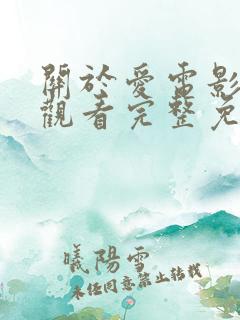 關於愛電影
觀看完整免
曦陽雪
未经同意禁止转载